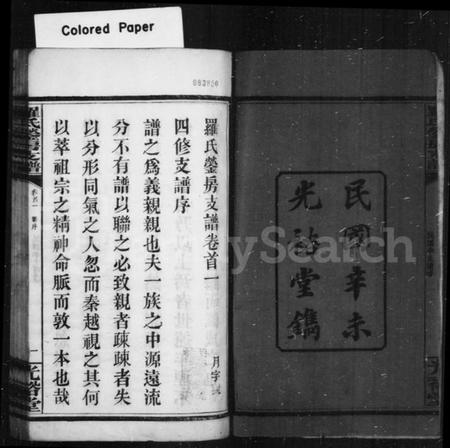 Colored Paper
民國辛未
光裕堂鐫
羅氏瑩房支譜卷首一
四修支譜序
譜之為義親親也夫一族之中源遠流
分不有譜以聯之必致親者疎疎者失
以分形同氣之人忽而秦越視之其何
以萃祖宗之精神命脈而敦一本也哉
羅氏瑩房支譜
卷首一
光裕堂
MySearch